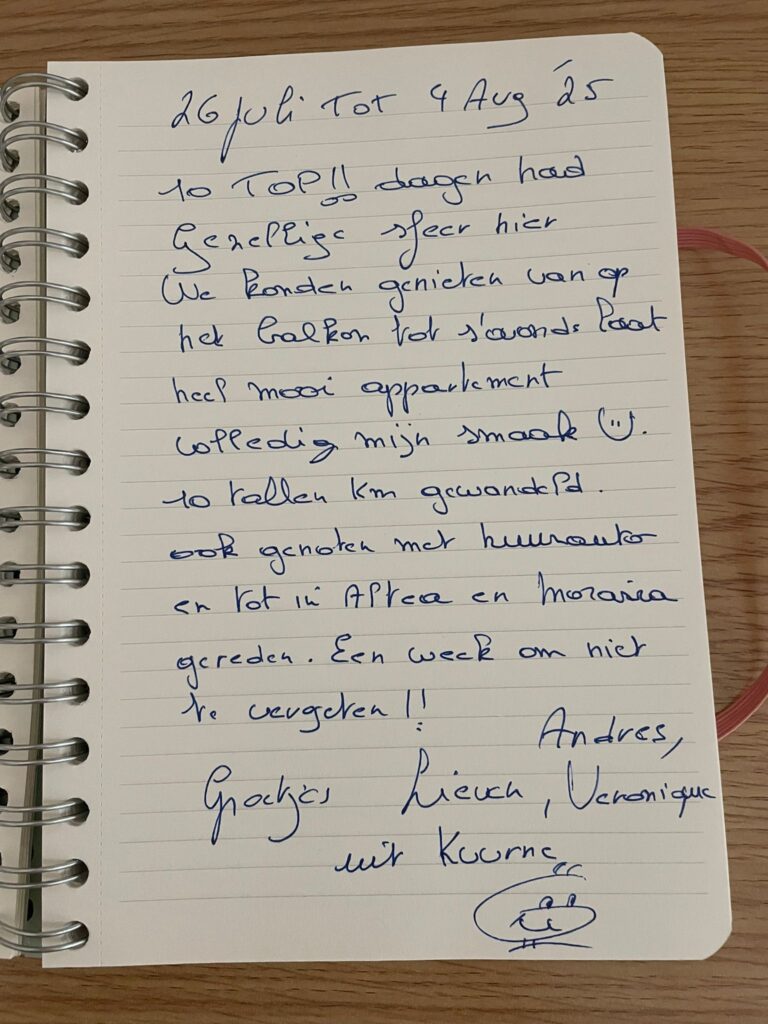 26 juli tot 4 Aug '25
10 TOP!! dagen had
Gezellige sfeer hier
We konden genieten van op
het balkon tot s'avonds laat
heel mooi appartement
volledig mijn smaak ☺.
10 tallen km gewandeld.
ook genoten met huurauto
en tot in Altea en Moraira
gereden. Een week om niet
te vergeten!!
Andres,
Groetjes Lieven, Veronique
uit Kuurne